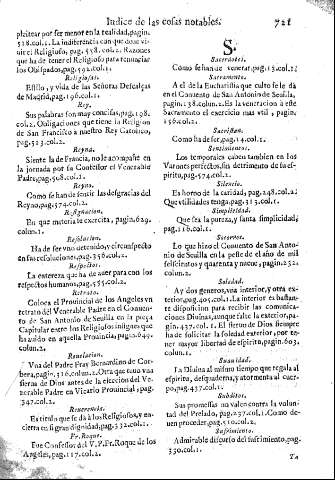 Indice de las cosas notables. 721
pleitear por ser menor en la realidad, pagin.
528.col.1. La indiferencia con que deve vi-
vir el Religioso, pag. 558.col.2. Razones
que ha de tener el Religioso para renunciar
los Obispados, pag.592.col.1.
Religiosas.
Estilo, y vida de las Señoras Descalças
de Madrid, pag.196.col.1.
Rey.
Sus palabras son muy concisas, pag.198.
col.2. Obligaciones que tiene la Religion
de San Francisco a nuestro Rey Catolico,
pag.523.col.2.
Reyna.
Siente la de Francia, no le acompañe en
la jornada por su Confessor el Venerable
Padre, pag.508.col.1.
Reyno.
Como se han de sentir las desgracias del
Reyno, pag.574.col.2.
Resignacion.
En que materia se exercita, pagin.629.
colun.1.
Resolucion.
Ha de ser vno detenido, y circunspecto
en sus resoluciones, pag.356.col.2.
Respetos.
La entereza que ha de aver para con los
respetos humanos, pag.555.col.2.
Retrato.
Coloca el Provincial de los Angeles vn
retrato del Venerable Padre en el Conuen-
to de San Antonio de Sevilla en la pieça
Capitular entre los Religiosos insignes que
ha auido en aquella Provincia, pag.649.
colun.2.
Reuelacion.
Vna del Padre Fray Bernardino de Cor-
bera, pagin.316.colun.2. Otra que tuuo vna
sierva de Dios antes de la eleccion del Ve-
nerable Padre en Vicario Provincial, pag.
347.col.2.
Reuerencia.
Es titulo que se dà à los Religiosos, y en-
cierra en si gran dignidad, pag.332.col.1.
Fr. Roque.
Fue Confessor del V.P.Fr.Roque de los
Angeles, pag.117.col.2.
S.
Sacerdotes.
Como se han de venerar, pag.13.col.2.
Sacramento.
A el de la Eucharistia que culto se le dà
en el Conuento de San Antonio de Sevilla,
pagin.138.colun.2. Es la veneracion à este
Sacramento el exercicio mas vtil, pagin.
156.col.2.
Sacristan.
Como ha de ser, pag.14.col.1.
Sentimientos.
Los temporales caben tambien en los
Varones perfectos, sin detrimento de su es-
piritu, pag.574.col.2.
Silencio.
Es horno de la caridad, pag.248.col.2.
Que vtilidades tenga, pag.313.col.1.
Simplicidad.
Que sea la pureza, y santa simplicidad,
pag.116.col.1.
Socorros.
Lo que hizo el Conuento de San Anto-
nio de Sevilla en la peste de el año de mil
seiscientos y quarenta y nueue, pagin.232.
colun.2.
Soledad.
Ay dos generos, vna interior, y otra ex-
terior, pag.405.col.1. La interior es bastan-
te disposicion para recibir las comunica-
ciones Divinas, aunque falte la exterior, pa-
gin.437.col.1. El sieruo de Dios siempre
ha de solicitar la soledad exterior, por te-
ner mayor libertad de espiritu, pagin.603.
colun.1.
Suauidad.
La Diuina al mismo tiempo que regala al
espiritu, desquaderna, y atormenta al cuer-
po, pag.437.col.1.
Subditos.
Sus promessas no valen contra la volun-
tad del Prelado, pag.237.col.1. Como de-
uen proceder, pag.510.col.2.
Sufrimiento.
Admirable discurso del sufrimiento, pag.
330.col.1.